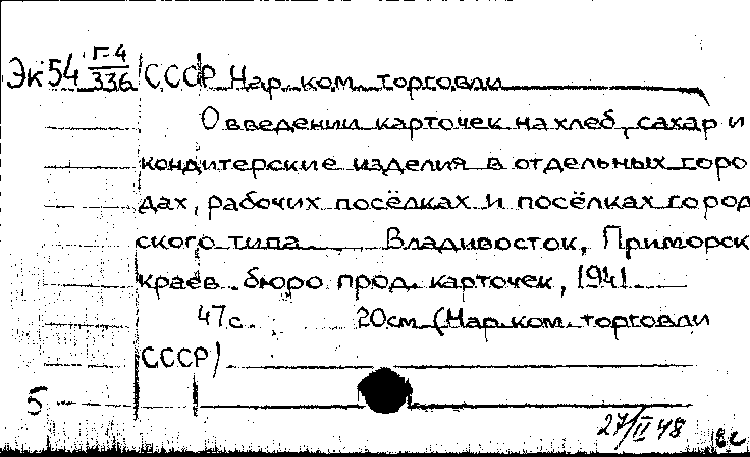 Эк54 Г-4/336 СССР Нар. ком. торговли
О введении карточек на хлеб, сахар и
кондитерские изделия в отдельных горо
дах, рабочих посёлках и посёлках город
ского типа. Владивосток, Приморск
краев. бюро прод. карточек, 1941.
47с. 20см (Нар. ком. торговли
СССР)
5
27/II 48